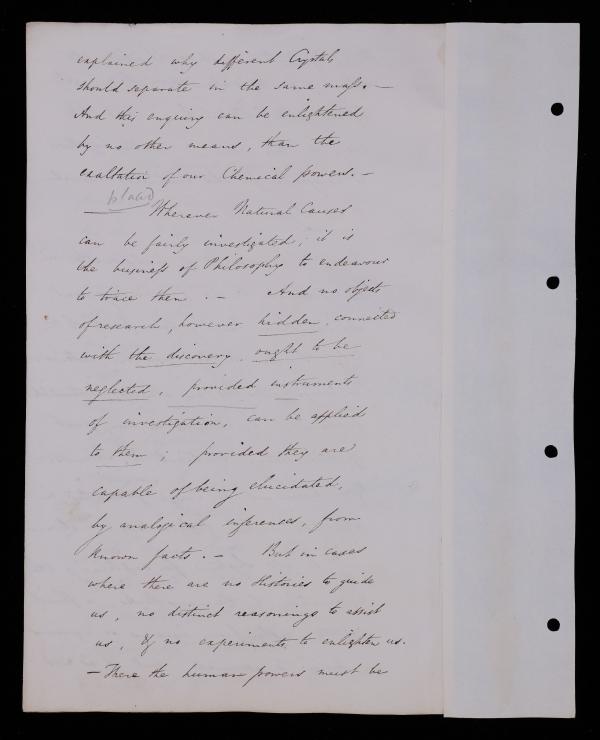 explained why different Crystals
should separate in the same mass. —
And this enquiry can be enlightened
by no other means, than the
exaltation of our Chemical powers. —
— Wherever Natural Causes
can be fairly investigated; it is
the business of Philosophy to endeavour
to trace them. — And no objects
of research, however hidden, connected
with the discovery, ought to be
neglected, provided instruments
of investigation, can be applied
to them; provided they are
capable of being elucidated,
by analogical inferences, from
known facts. — But in cases
where there are no Histories to guide
us, no distinct reasonings to assist
us, & no experiments to enlighten us.
— There the human powers must be